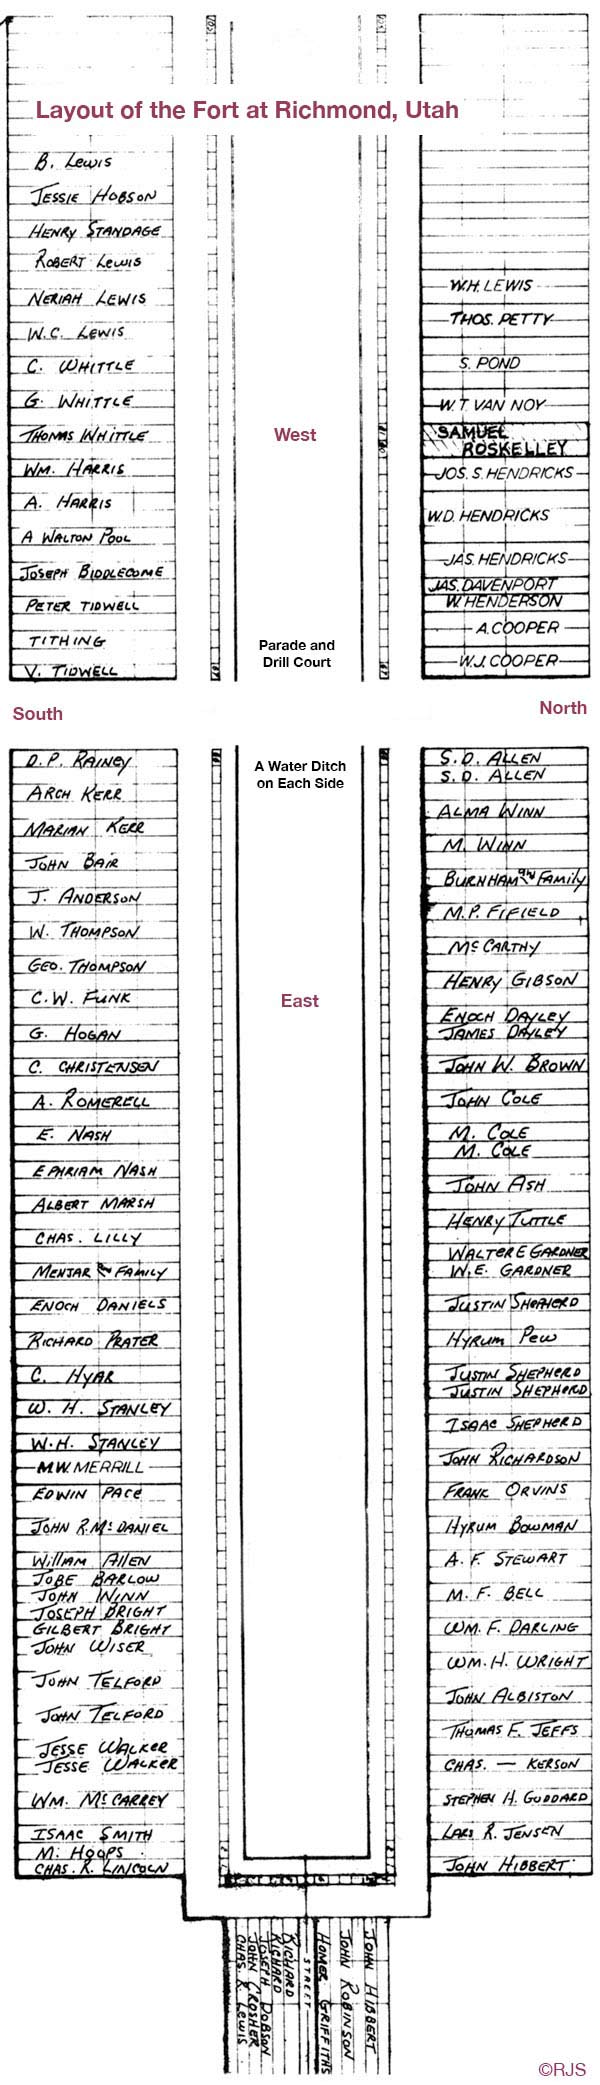 Layout of the Fort at Richmond, Utah
B. Lewis
Jessie Hobson
Henry Standage
Robert Lewis
Neriah Lewis
W.C. Lewis
C. Whittle
G. Whittle
Thomas Whittle
Wm. Harris
A. Harris
A Walton Pool
Joseph Biddlecome
Peter Tidwell
Tithing
V. Tidwell
West
Parade and
Drill Court
W.H. LEWIS
THOS. PETTY
S. POND
W.T. VAN NOY
SAMUEL
ROSKELLEY
JOS. S. HENDRICKS
W.D. HENDRICKS
JAS. HENDRICKS
JAS. DAVENPORT
W. HENDERSON
A. COOPER
W.J. COOPER
South
North
D.P. Rainey
Arch Kerr
Marian Kerr
John Bair
J. Anderson
W. Thompson
Geo. Thompson
C.W. Funk
G. Hogan
C. Christensen
A. Romerell
E. Nash
Ephriam Nash
Albert Marsh
Chas. Lilly
Menjar and Family
Enoch Daniels
Richard Prater
C. Hyar
W. H. Stanley
W.H. Stanley
M.W. MERRILL
Edwin Pace
John R. McDaniel
William Allen
Jobe Barlow
John Winn
Joseph Bright
Gilbert Bright
John Wiser
John Telford
John Telford
Jesse Walker
Jesse Walker
Wm. McCarrey
Isaac Smith
M. Hoops
Chas. R. Lincoln
A Water Ditch
on Each Side
East
S.D. Allen
S.D. Allen
Alma Winn
M. Winn
Burnham and Family
M.P. Fifield
McCarthy
Henry Gibson
Enoch Dayley
James Dayley
John W. Brown
John Cole
M. Cole
M. Cole
John Ash
Henry Tuttle
Walter E Gardner
W.E. Gardner
Justin Shepherd
Hyrum Pew
Justin Shepherd
Justin Shepherd
Isaac Shepherd
John Richardson
Frank Orvins
Hyrum Bowman
A. F. Stewart
M. F. Bell
Wm. F. Darling
Wm. H. Wright
John Albiston
Thomas F. Jeffs
Chas. — Kerson
Stephen H. Goddard
Lars R. Jensen
John Hibbert
Chas. R. Lewis
John Crosher
Joseph Dobson
Richard
Richard
STREET
Homer Griffiths
John Robinson
John Hibbert
©RJS